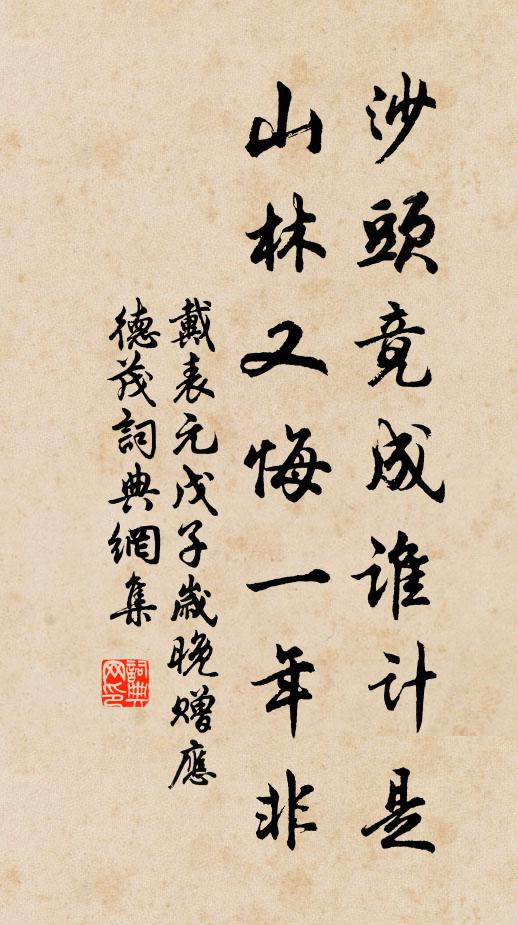 沙頭竟成誰計是
山林又悔一年非
戴表元戊子歲晚贈應
德茂詞典網集
詞典网印